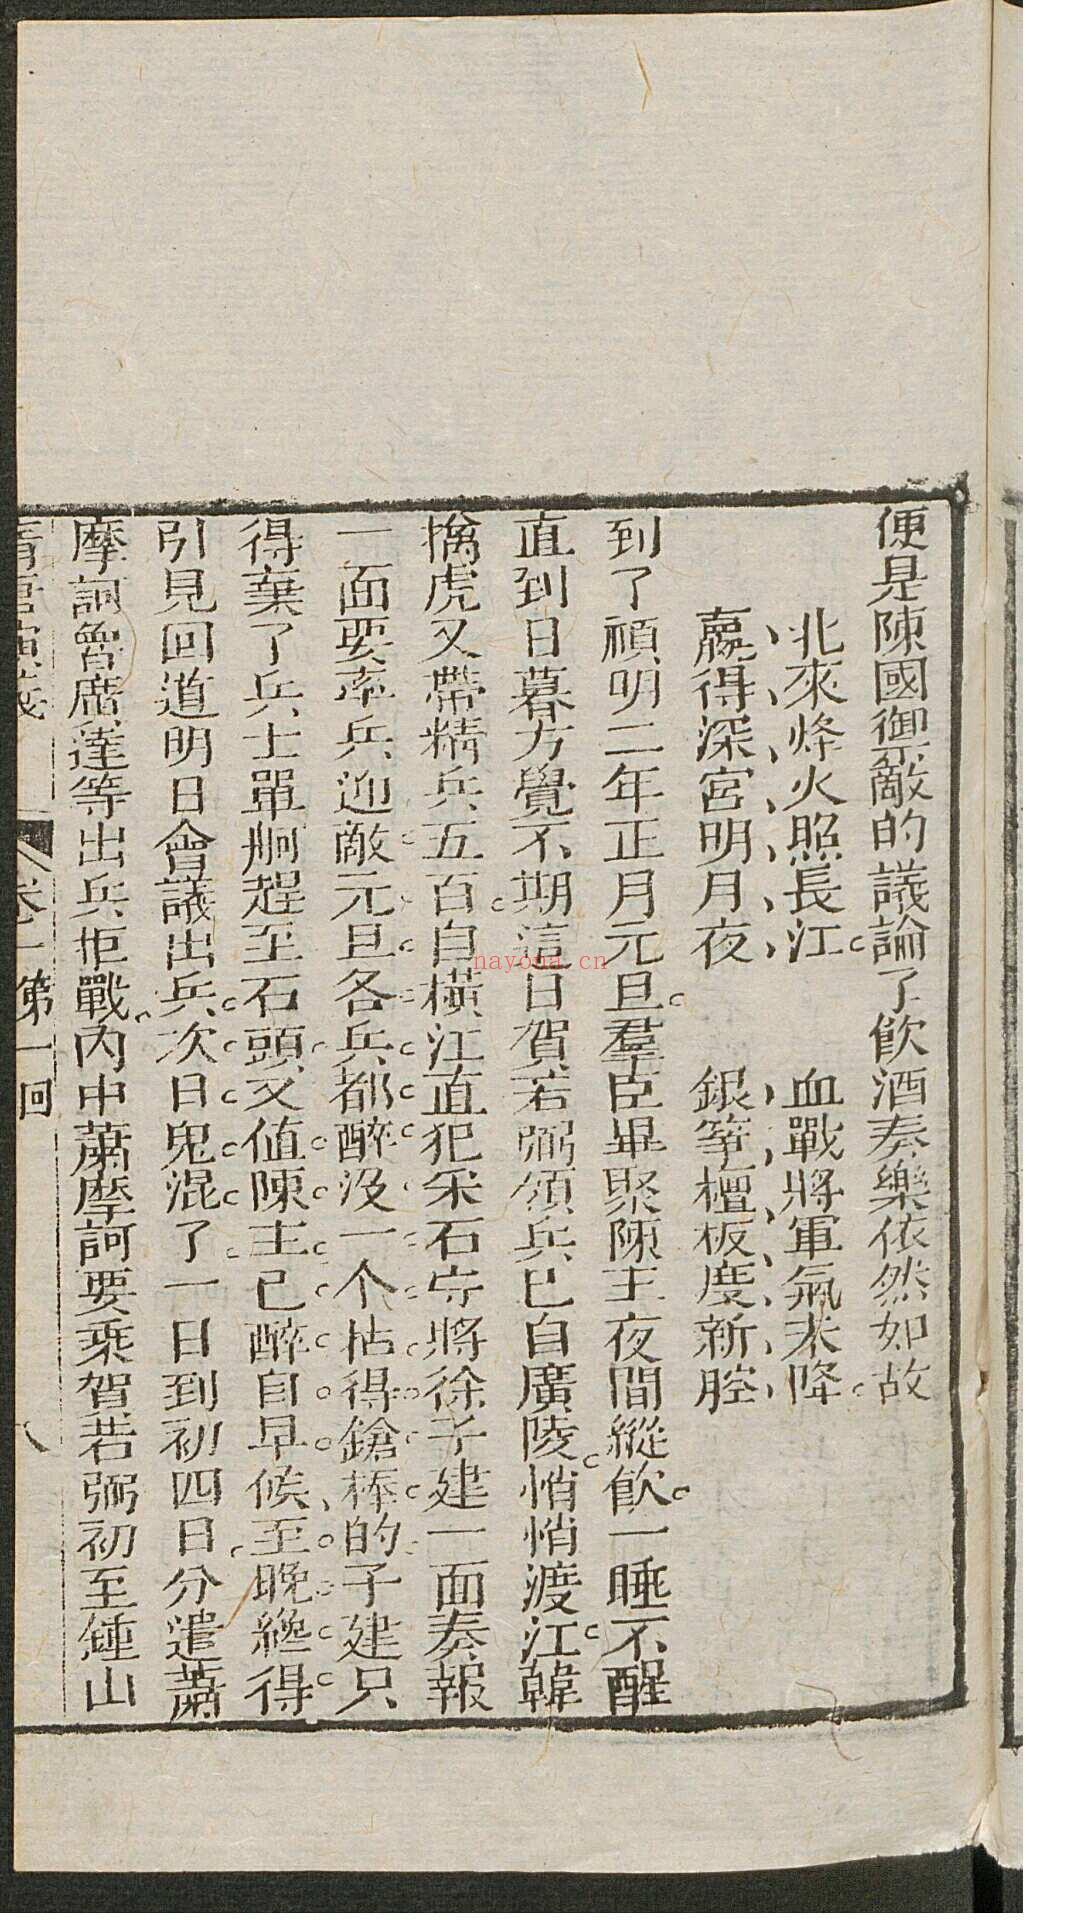 便是陳國御敵的議論了飲酒奏樂依然如故
北來烽火照長江　血戰將軍氣未降
贏得深宮明月夜　銀箏檀板度新腔
到了禎明二年正月元旦羣臣畢聚陳王夜間縱飲一睡不醒
直到日暮方覺不期這日賀若弼領兵已自廣陵悄悄渡江韓
擒虎又帶精兵五百自橫江直犯采石守將徐子建一面奏報
一面要率兵迎敵元旦各兵都醉沒一个拈得鎗棒的子建只
得棄了兵士單舸趕至石頭又值陳王已醉自早候至晚纔得
引見回道明日會議出兵次日鬼混了一日到初四日分遣蕭
摩訶魯廣達等出兵拒戰內中蕭摩訶要乘賀若弼初至鍾山
隋唐演義　卷一第一回　八
nayona.cn